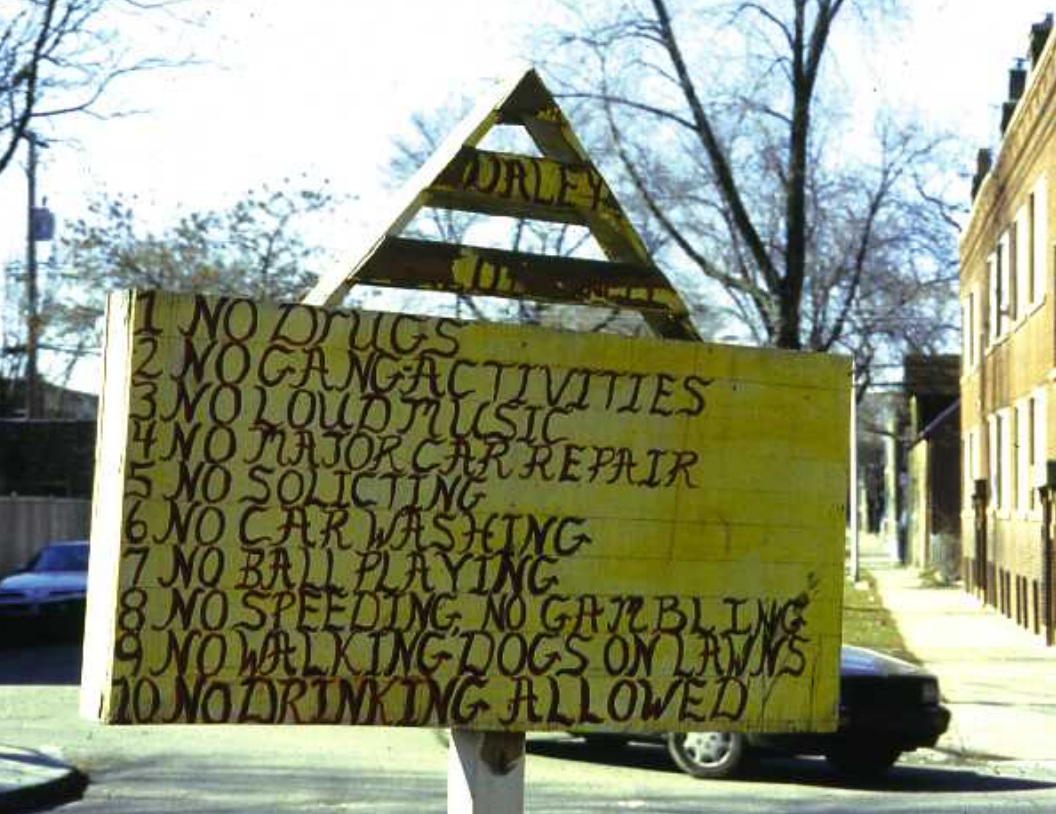 1 NO DRUGS
2 NO GANG ACTIVITIES
3 NO LOUD MUSIC
4 NO MAJOR CAR REPAIR
5 NO SOLICTING
6 NO CAR WASHING
7 NO BALL PLAYING
8 NO SPEEDING, NO GAMBLING
9 NO WALKING DOGS ON LAWNS
10 NO DRINKING ALLOWED